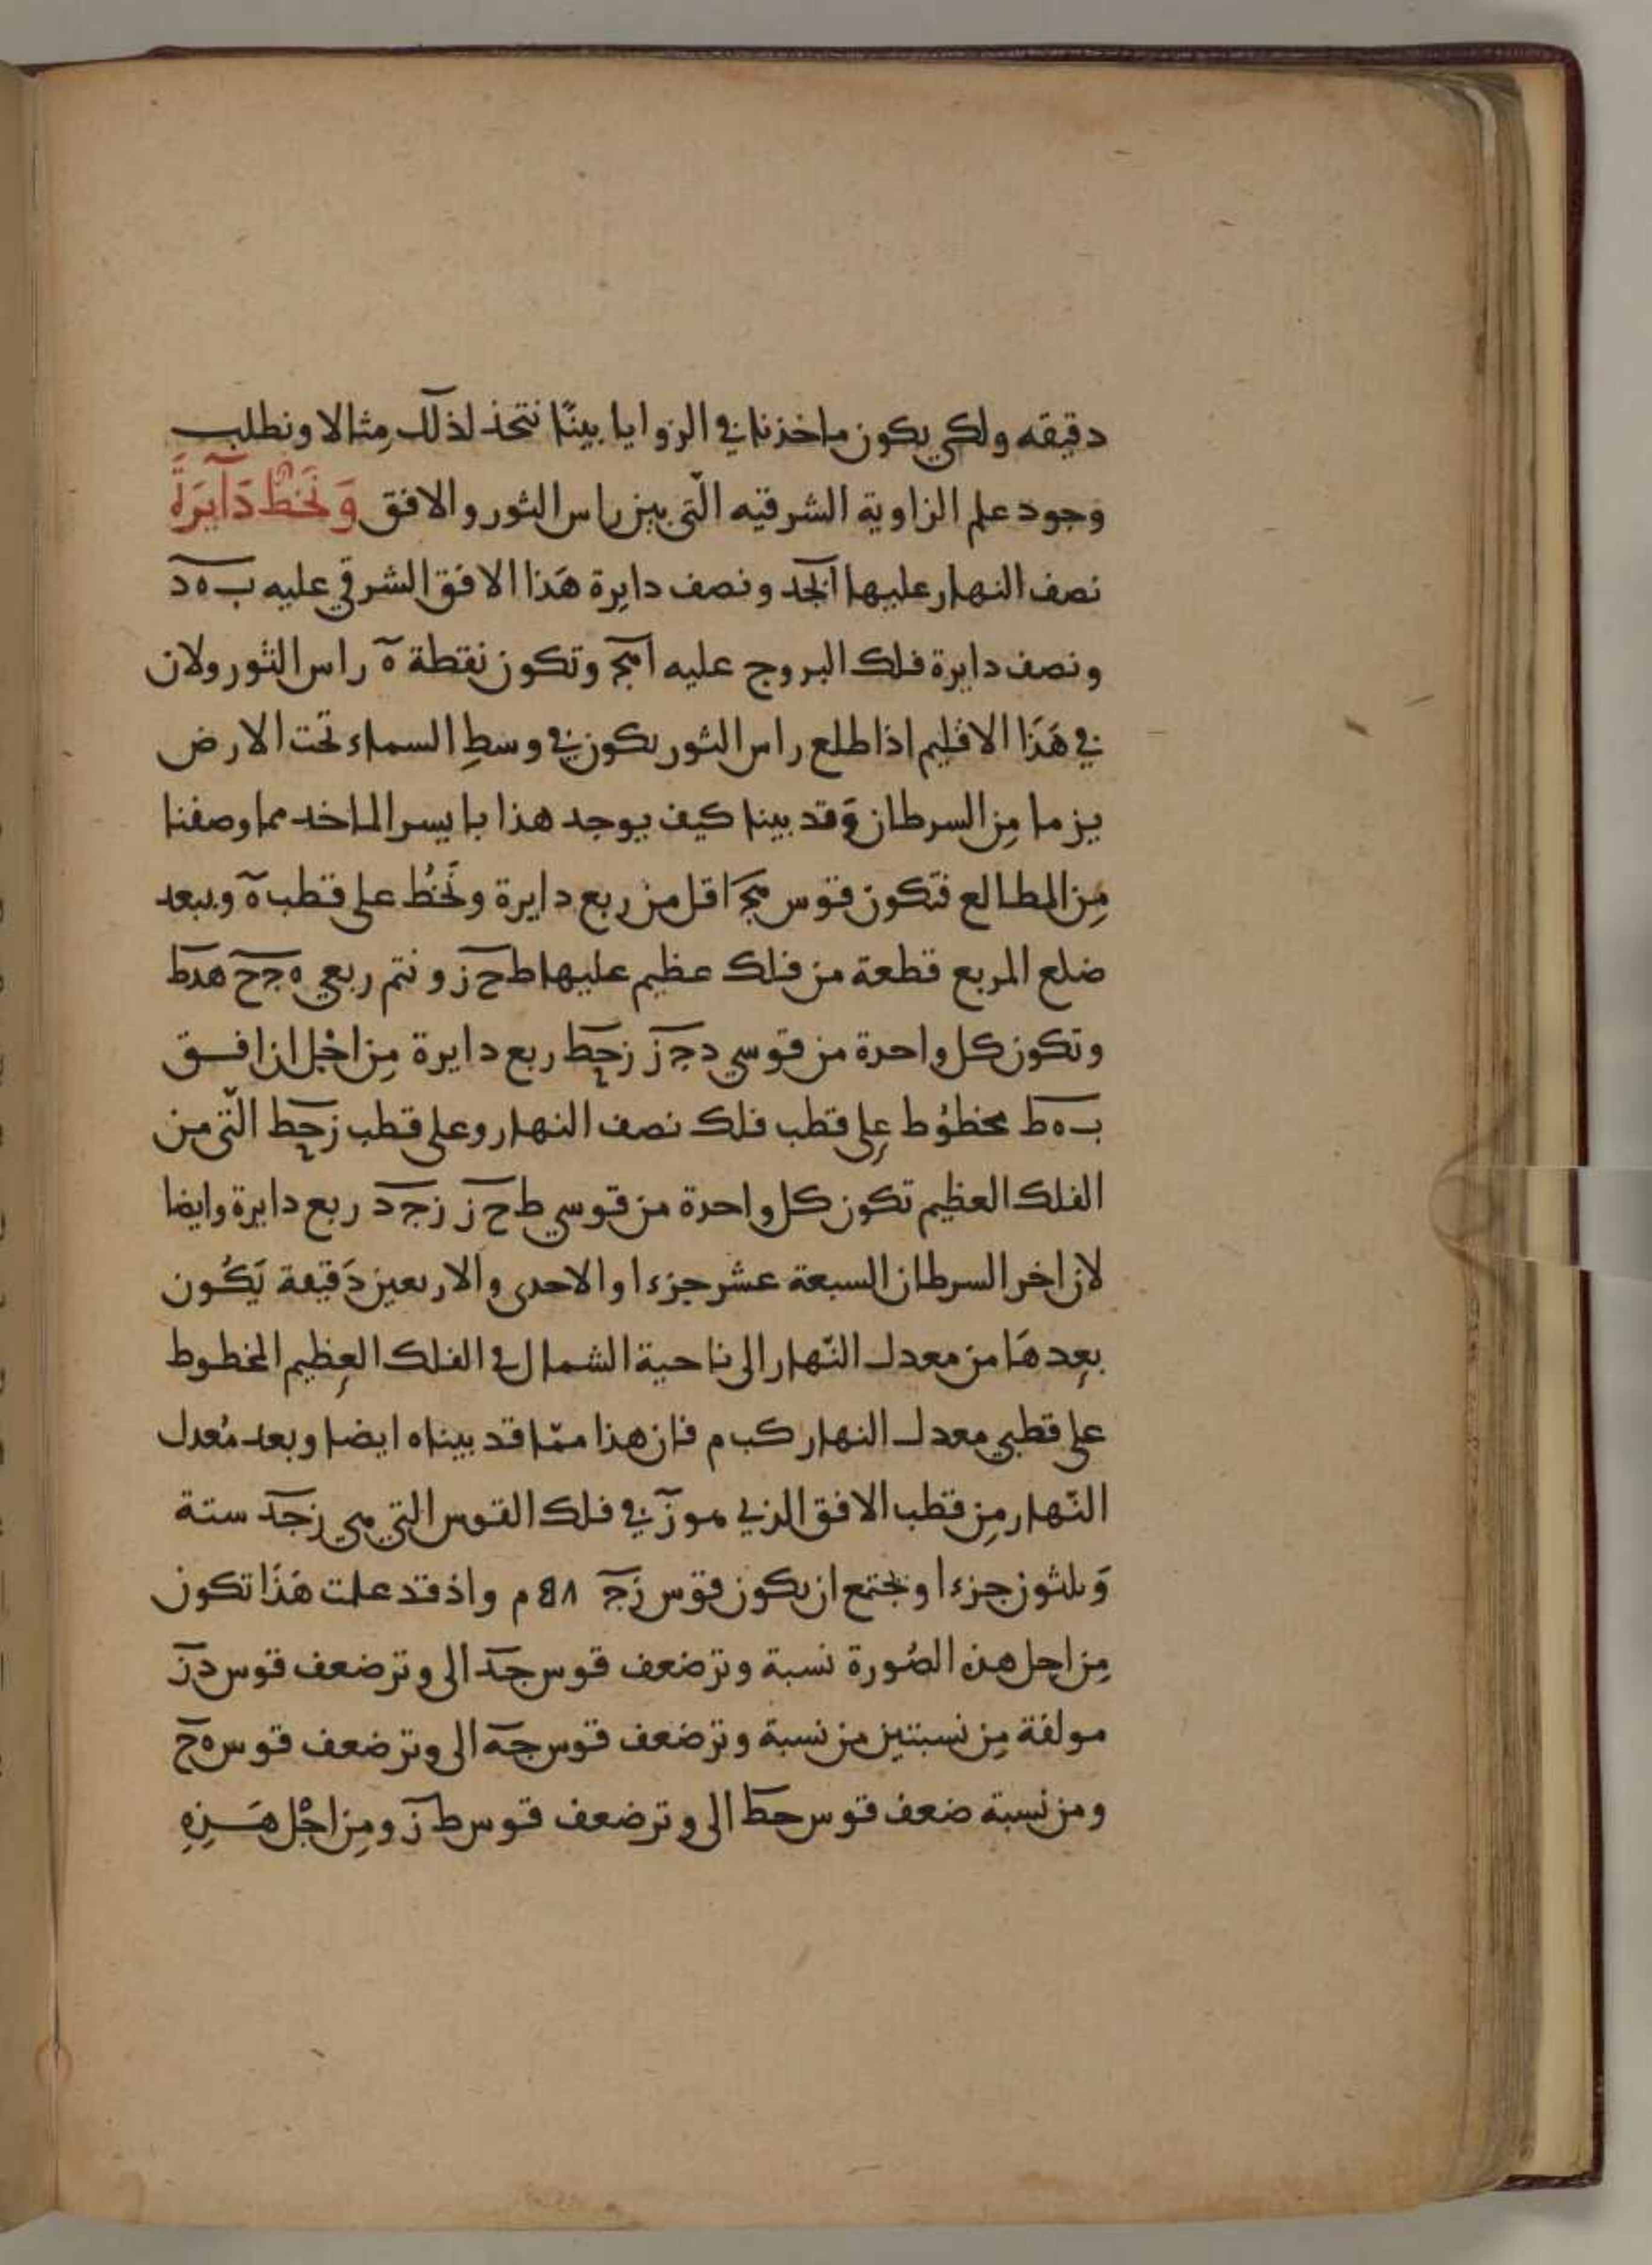 دقيقه ولكي يكون ماخذنا في الزوايا بينًا نتخذ لذلك مِثالا ونطلب
وجود علم الزاوية الشرقيه الّتي بين راس الثور والافق وَنَخطُّ دَآيَرَةً
نصف النهار عليها ابجد ونصف دايرة هَذا الافق الشرقي عليه ب ه د
ونصف دايرة فلك البروج عليه اهج وتكون نقطة ه راس الثور ولان
في هَذَا الاقليم اذا طلع راس الثور يكون في وسطِ السماء تحت الارض
يز ما مِن السرطان وَقد بينا كيف يوجد هذا بايسر الماخد مما وصفنا
مِن المطالع فتكون قوس هج اقل من ربع دايرة ونَخُط على قطب ه وببعد
ضلع المربع قطعة من فلك عظيم عليها ط ح ز ونتم ربعي ه ج ح هدط
وتكون كل واحدة من قوسي د ج ز زحط ربع دايرة مِن اجْل ان افق
ب ه ط مخطوُط على قطب فلك نصف النهار وعلى قطب زحط الّتي من
الفلك العظيم تكون كل واحدة من قوسي ط ح ز ز ج د ربع دايرة وايضا
لان اخر السرطان السبعة عشر جزءا والاحدى والاربعين دَقيقة يَكُون
بعدهَا من معدل النّهار الى ناحية الشمال في الفلك العظيم المخطوط
على قطبي معدل النهار كب م فان هذا ممّا قد بيناه ايضا وبعد مُعدل
النّهار مِن قطب الافق الذي هو ز في فلك القوس التي هي زجد ستة
وَثلثون جزءا ويجتمع ان يكون قوس زج م واذ قد علمت هَذَا تكون
مِن اجل هذه الصُورة نسبة وتر ضعف قوس جد الى وتر ضعف قوس دز
مولفة مِن نسبتين من نسبة وتر ضعف قوس جه الى وتر ضعف قوس ه ح
ومن نسبة ضعف قوس حط الى وتر ضعف قوس ط ز ومِن اجْل هَـذِهِ